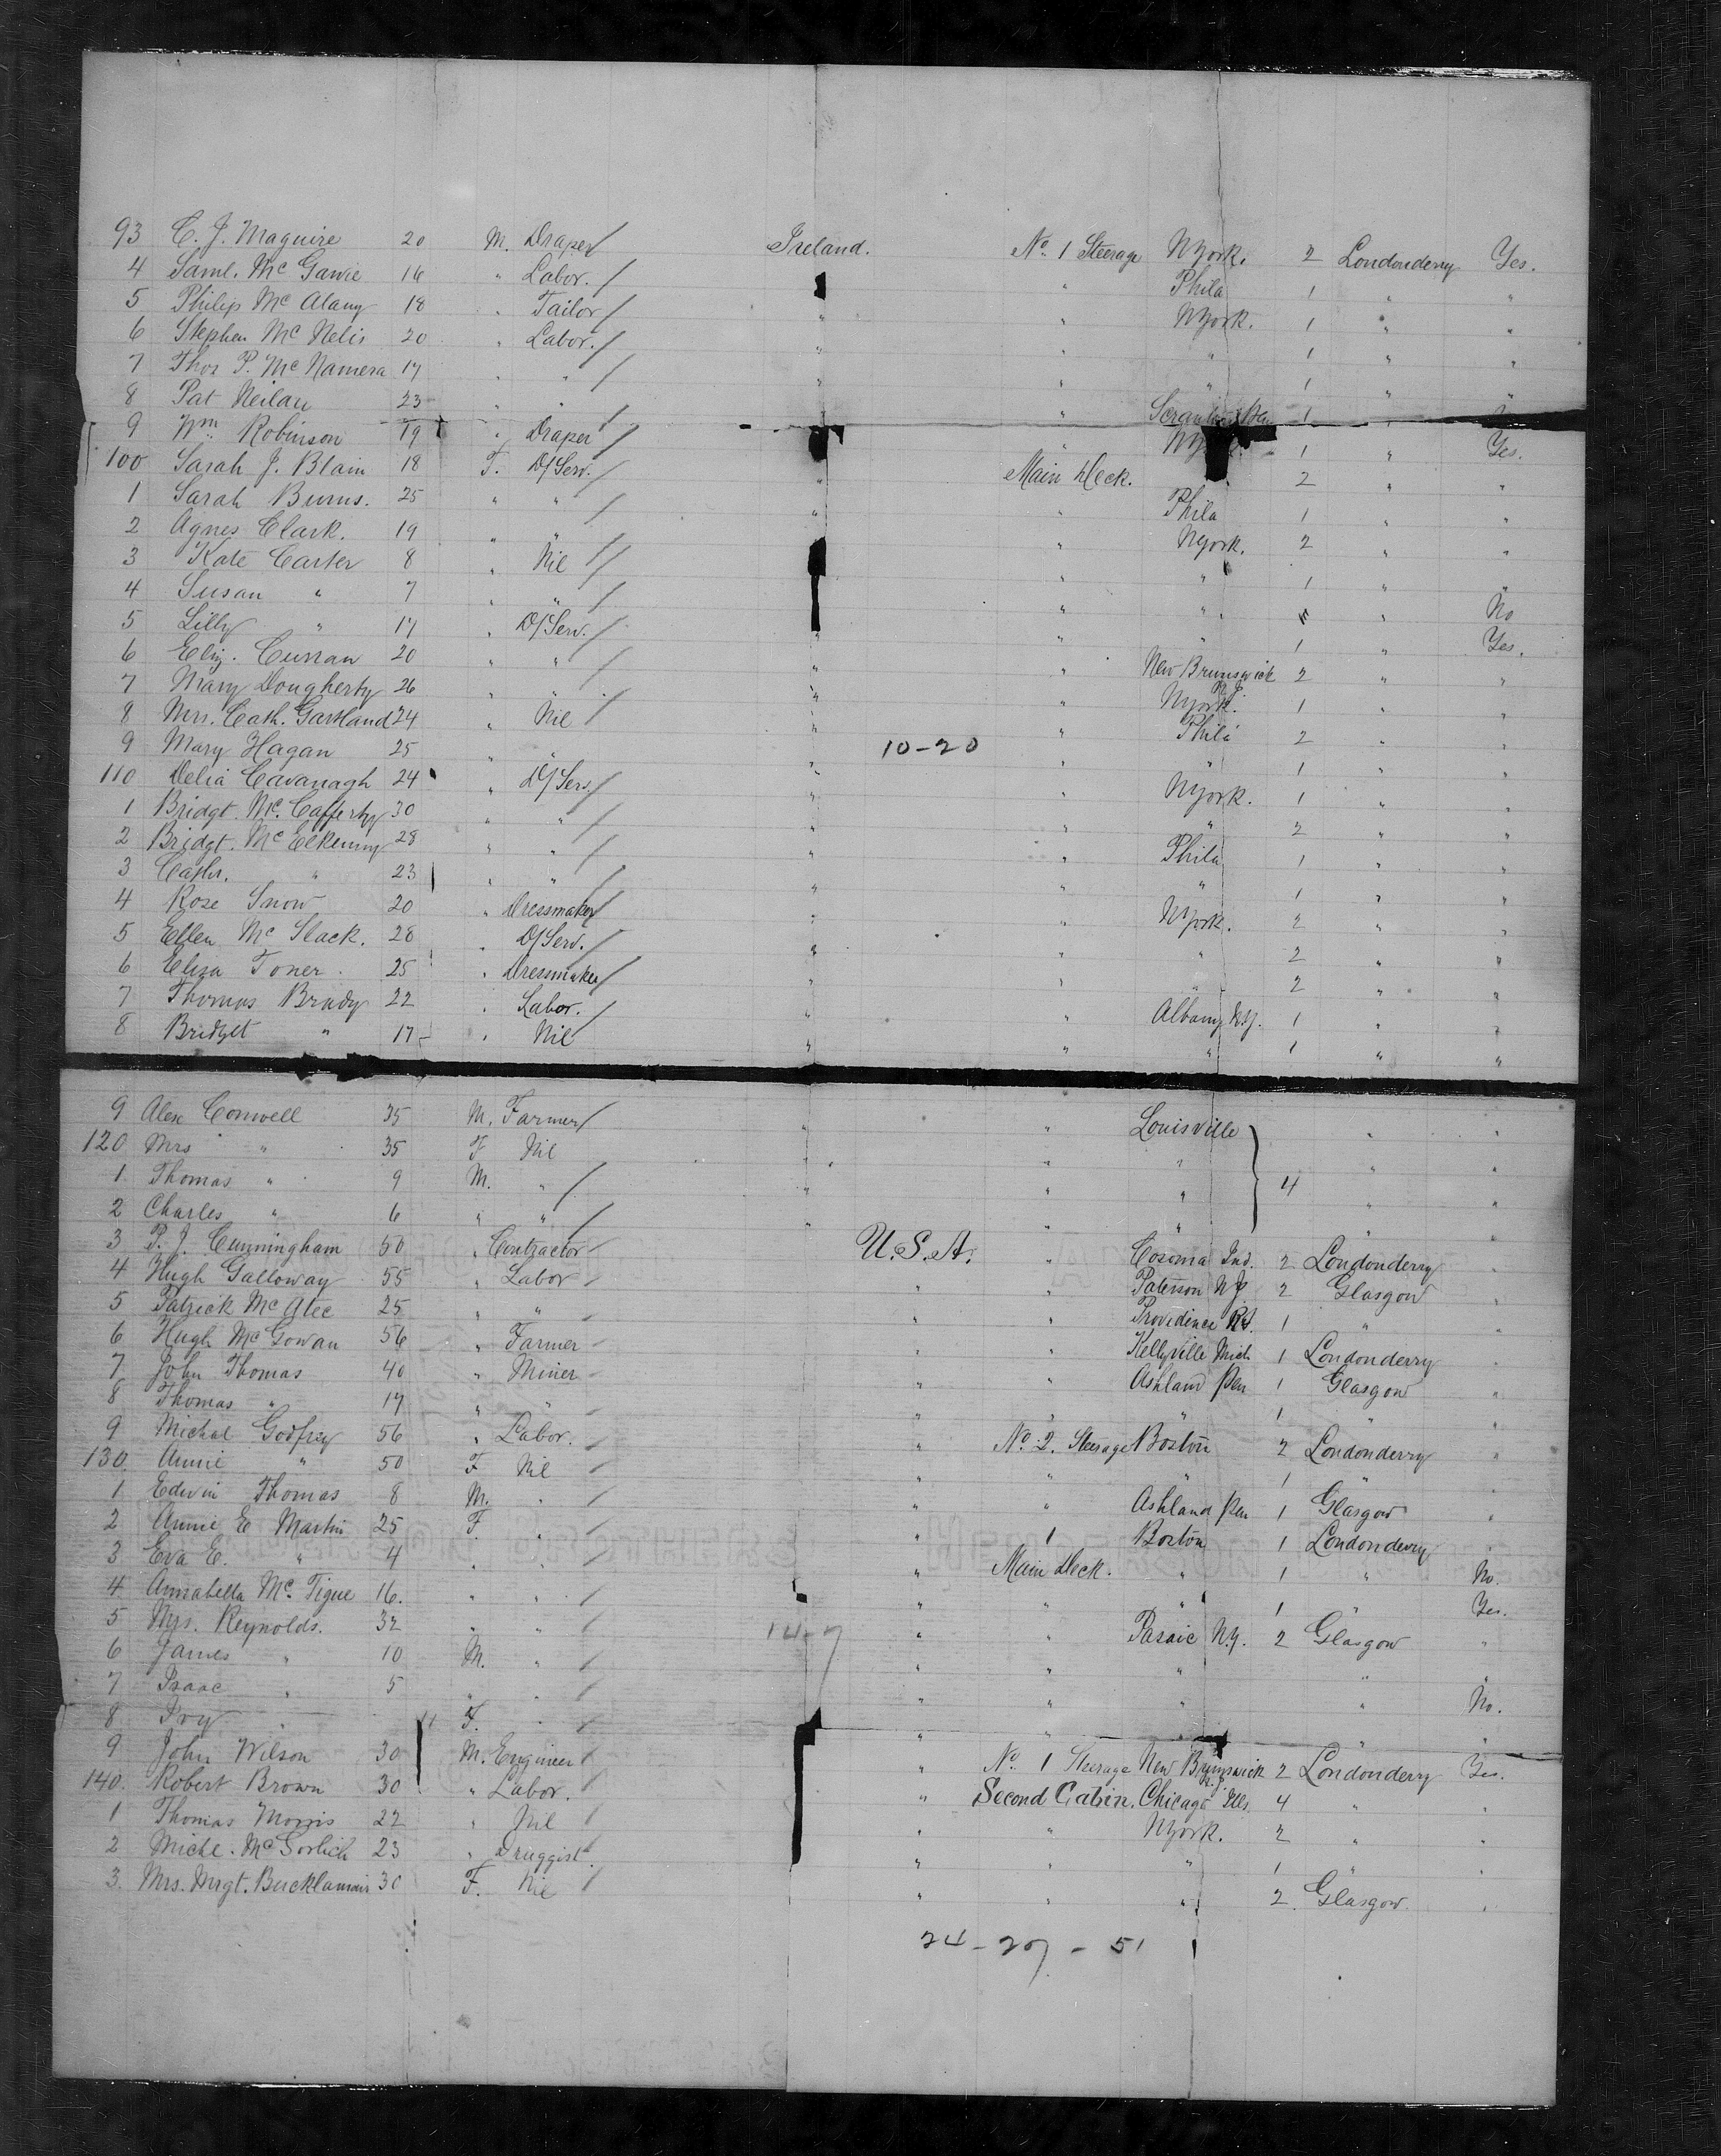 93 C. J. Maguire 20 M. Draper / Ireland. No. 1 Steerage NYork. 2 Londonderry Yes.
4 Saml. Mc Gawie 16 " Labor. / " " Phila 1 " "
5 Philip Mc Alany 18 " Tailor / " " NYork. 1 " "
6 Stephen Mc Nelis 20 " Labor. / " " " 1 " "
7 Thos P. Mc Namera 17 " " / " " " 1 " "
8 Pat Neilan 23 " " / " Scranton Pa 1 "
9 Wm. Robinson 19 " Draper / " NYork. 1 " Yes.
100 Sarah J. Blain 18 F. D/Serv. / " Main Deck. " 2 " "
1 Sarah Burns. 25 " " / " " Phila 1 " "
2 Agnes Clark. 19 " " / " NYork. 2 " "
3 Kate Carter 8 " Nil / " " 1 " "
4 Susan " 7 " " / " " " No
5 Lilly " 17 " D/Serv. / " " " 1 " Yes.
6 Eliz. Curran 20 " " / " " New Brunswick N.J. 2 " "
7 Mary Dougherty 26 " " / " " NYork. 1 " "
8 Mrs. Cath. Gartland 24 " Nil / " " Phila 2 " "
9 Mary Hagan 25 " " " 10-20 " " 1 " "
110 Delia Cavanagh 24 " D/Serv. / " " NYork. 1 " "
1 Bridgt. Mc. Cafferty 30 " " / " " " 2 " "
2 Bridgt. Mc Elkenny 28 " " / " " Phila 1 " "
3 Cathr. " 23 " " / " " " 1 " "
4 Rose Snow 20 " Dressmaker / " " NYork. 2 " "
5 Ellen Mc Slack. 28 " D/Serv. / " " " 2 " "
6 Eliza Toner. 25 " Dressmaker / " " " 2 " "
7 Thomas Brady 22 " Labor. / " " Albany N.Y. 1 " "
8 Bridget " 17 " Nil " " " 1 " "
9 Alex Conwell 35 M. Farmer / " " Louisville " "
120 Mrs " 35 F Nil " " " " "
1 Thomas " 9 M. " / " " " 4 " "
2 Charles " 6 " " / " " " " "
3 P. J. Cunningham 50 " Contractor U.S.A. " Cosoma Ind. 2 Londonderry "
4 Hugh Galloway 55 " Labor " " Paterson N J 2 Glasgow "
5 Patrick Mc Atee 25 " " " " Providence R.I. 1 " "
6 Hugh Mc Gowan 56 " Farmer " " Kellyville Mich 1 Londonderry "
7 John Thomas 40 " Miner " " Ashland Pen 1 Glasgow "
8 Thomas " 17 " " " " " 1 " "
9 Michal Godfrey 56 " Labor. " No. 2. Steerage Boston 2 Londonderry "
130 Annie " 50 F Nil " " " 1 " "
1 Edwin Thomas 8 M. " " " Ashland Pen 1 Glasgow "
2 Annie E Martin 25 F. " " 1 Boston 1 Londonderry "
3 Eva E. " 4 " " " Main Deck. " 1 " No.
4 Annabella Mc. Tigue 16. " " " " " 1 " Yes.
5 Mrs. Reynolds. 32 " " 14-7 " " Pasaic N.Y. 2 Glasgow "
6 James " 10 M. " " " " " "
7 Isaac " 5 " " " " " " No.
8 Ivy " F. " " " " " "
9 John Wilson 30 M. Engineer " No. 1 Steerage New Brunswick N.J. 2 Londonderry Yes.
140 Robert Brown 30 " Labor. " Second Cabin. Chicago Ills. 4 " "
1 Thomas Morris 22 " Nil " " NYork. 2 " "
2 Michl. Mc Gorlich 23 " Druggist. " " " 1 " "
3 Mrs. Mrgt. Bucklamair 30 F. Nil " " " 2 Glasgow. "
24-27-51